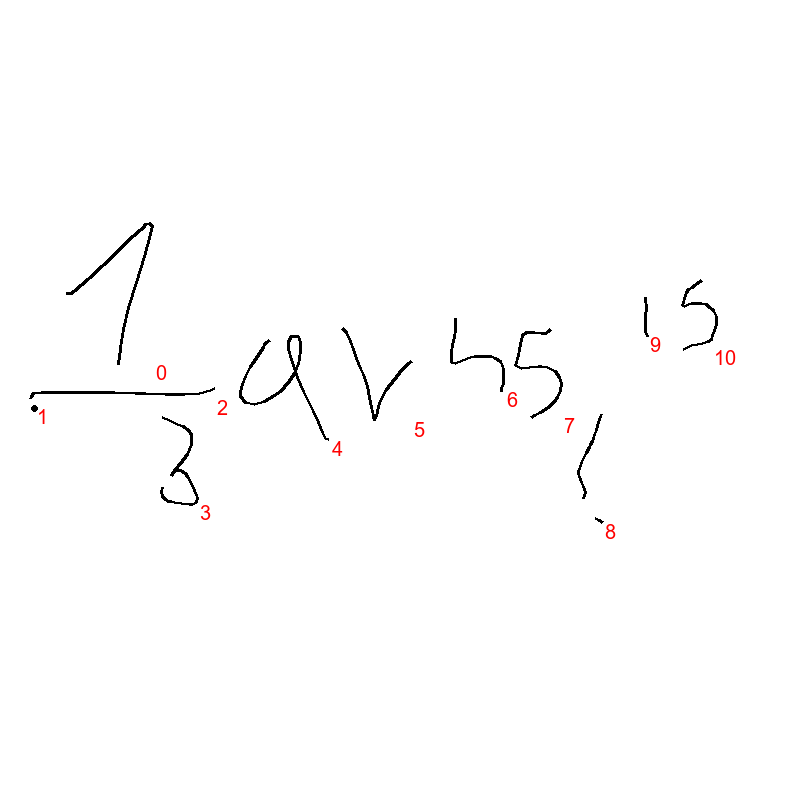 1
3
av 15
0
1
2
3
4
5
6
7
8
9
10